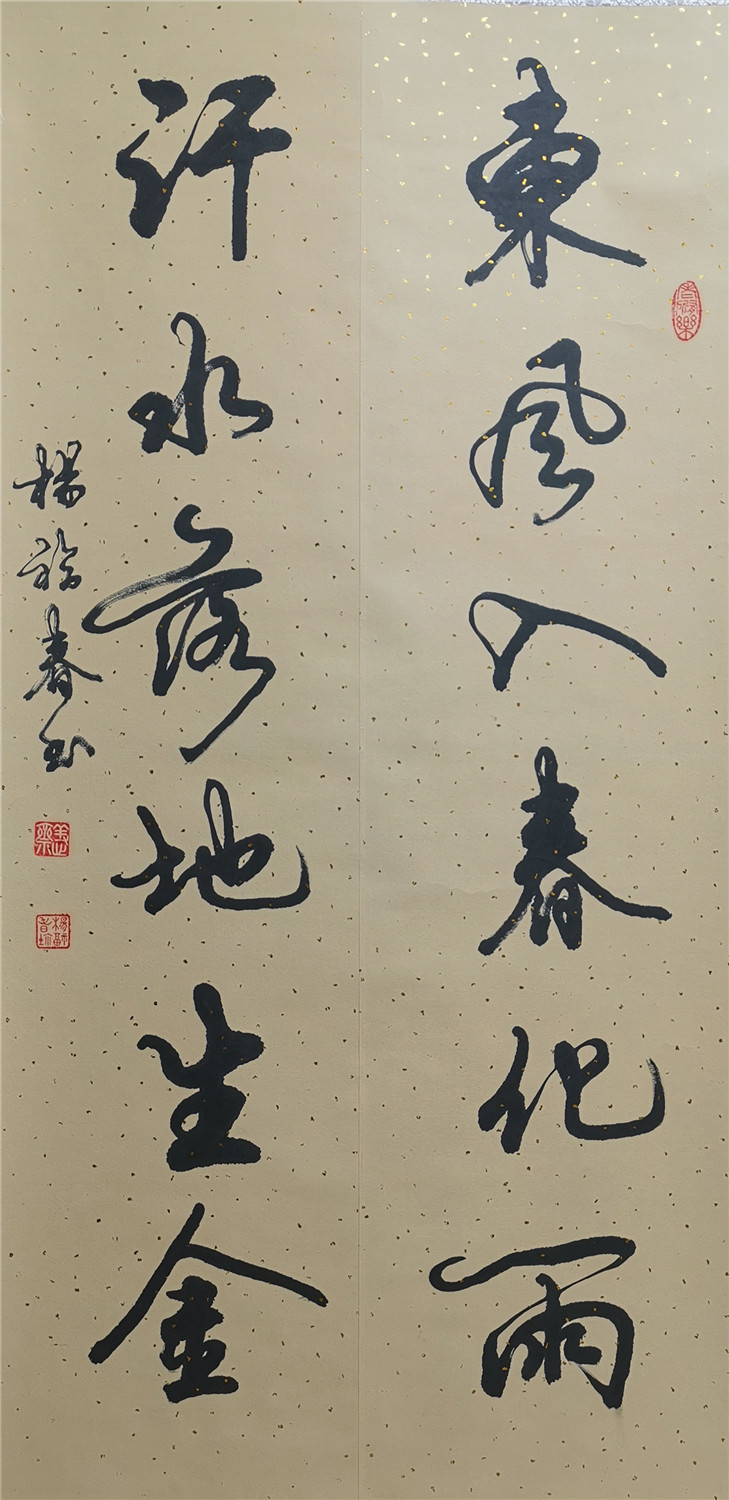 東风入春化雨
汗水落地生金
楊福春书